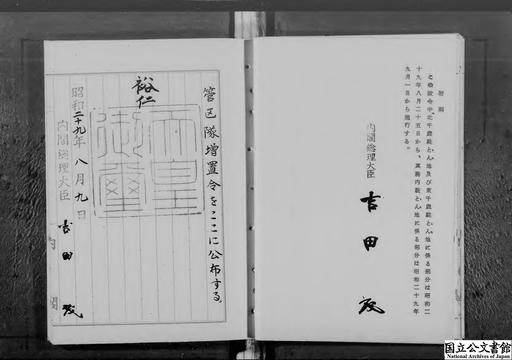 管区隊増置令をここに公布する。
裕仁
天皇御璽
昭和二十九年八月九日
内閣総理大臣
吉田茂
内閣
附則
この政令中、北千歳駐とん地及び東千歳駐とん地に係る部分は昭和二
十九年八月二十五日から、真駒内駐とん地に係る部分は昭和二十九年
九月一日から施行する。
内閣総理大臣
吉田茂
国立公文書館
National Archives of Japan